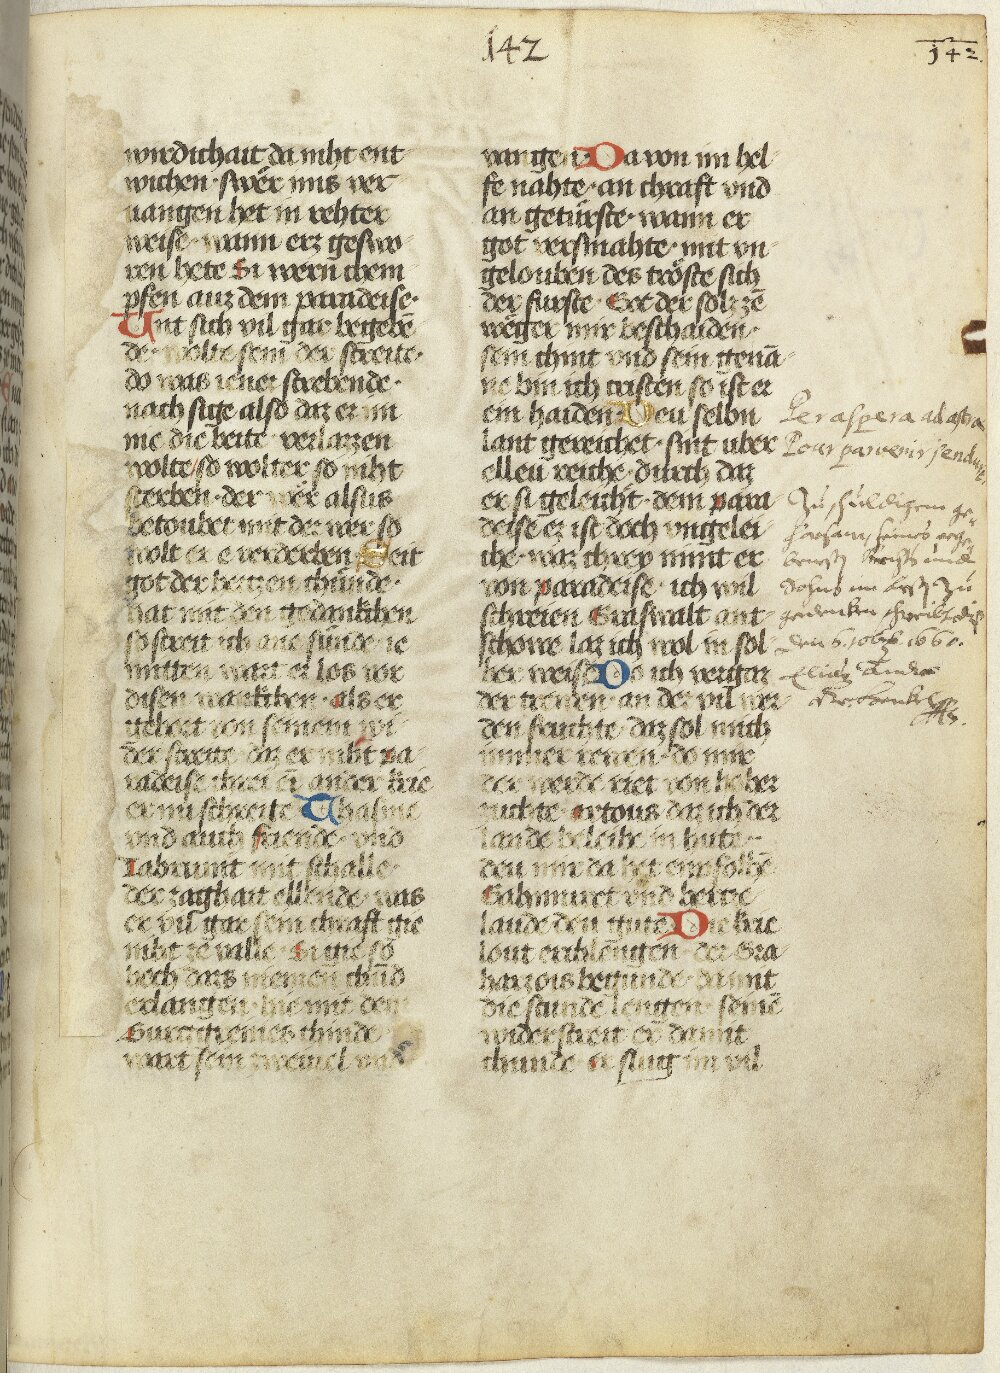 142
142.
wirdichait da niht ent
wichen · swër mis ver
uangen het in rehter
weise · wann erz geswo
ren hete Si wern chem
pfen auz dem paradeise ·
Unt sich vil gar begebē
der wolte sein der streite ·
do was iener strebende ·
nach sige also daz er im
nie die beite verlazzen
wolte so wolter so niht
sterben · der wër alsus
betoubet mit der wer so
wolt er e verderben Seit
got der hertzen chünde ·
hat mit den gedankhen
so streit ich ane sünde ie
mitten wart er los vor
disen wankhen · als er
gehort von seinem wi
der streite daz er niht pa
radeise schrei ein ander krie
er nu schreite Thasme
vnd auch friende · vnd
Tabrunt mit schalle ·
der zaghait ellende · was
er vil gar sein chraft gie
niht ze valle · Si gie so
hoch daz niemen chund
erlangen · hie mit dem
Burcgreues chinde
wart sein zweiuel
uangen Da von im hel
fe nahte · an chraft vnd
an getürste · wann er
got versmahte · mit vn
gelouben des tröste sich
der furste · Got der sol ze
weger mir beschaiden ·
sein chint vnd sein genā
ne bin ich cristen so ist er
ein haiden Deu selbn
lant gereichet · sint uber
elleu reiche · durch daz
er si geleicht · dem para
deise ez ist doch vngelei
che · waz chrey nimt er
von paradeise · ich wil
schreien Graswalt ant
schowe laz ich wol in sol
her weise Do ich vergaz
der trewen · an der vil wer
den feuchte · daz sol mich
immer rewen · do mir
der werde riet von hoher
zuchte · artous daz ich der
lande beleibe in hute ·
den mir da het enpfolhē
Gahmuret vnd hertze
laude den gutē Die krie
lout erchlengen · der Gra
harzois begunde · da mit
die stunde lengen · seinē
widerstreit er damit
chunde · er slug im vil
Per aspera ad astra
Pour parvenir j'endure.
Zu schuldigem ge-
horsam, seines
gedenken schreibt dis
den 6. 1660.